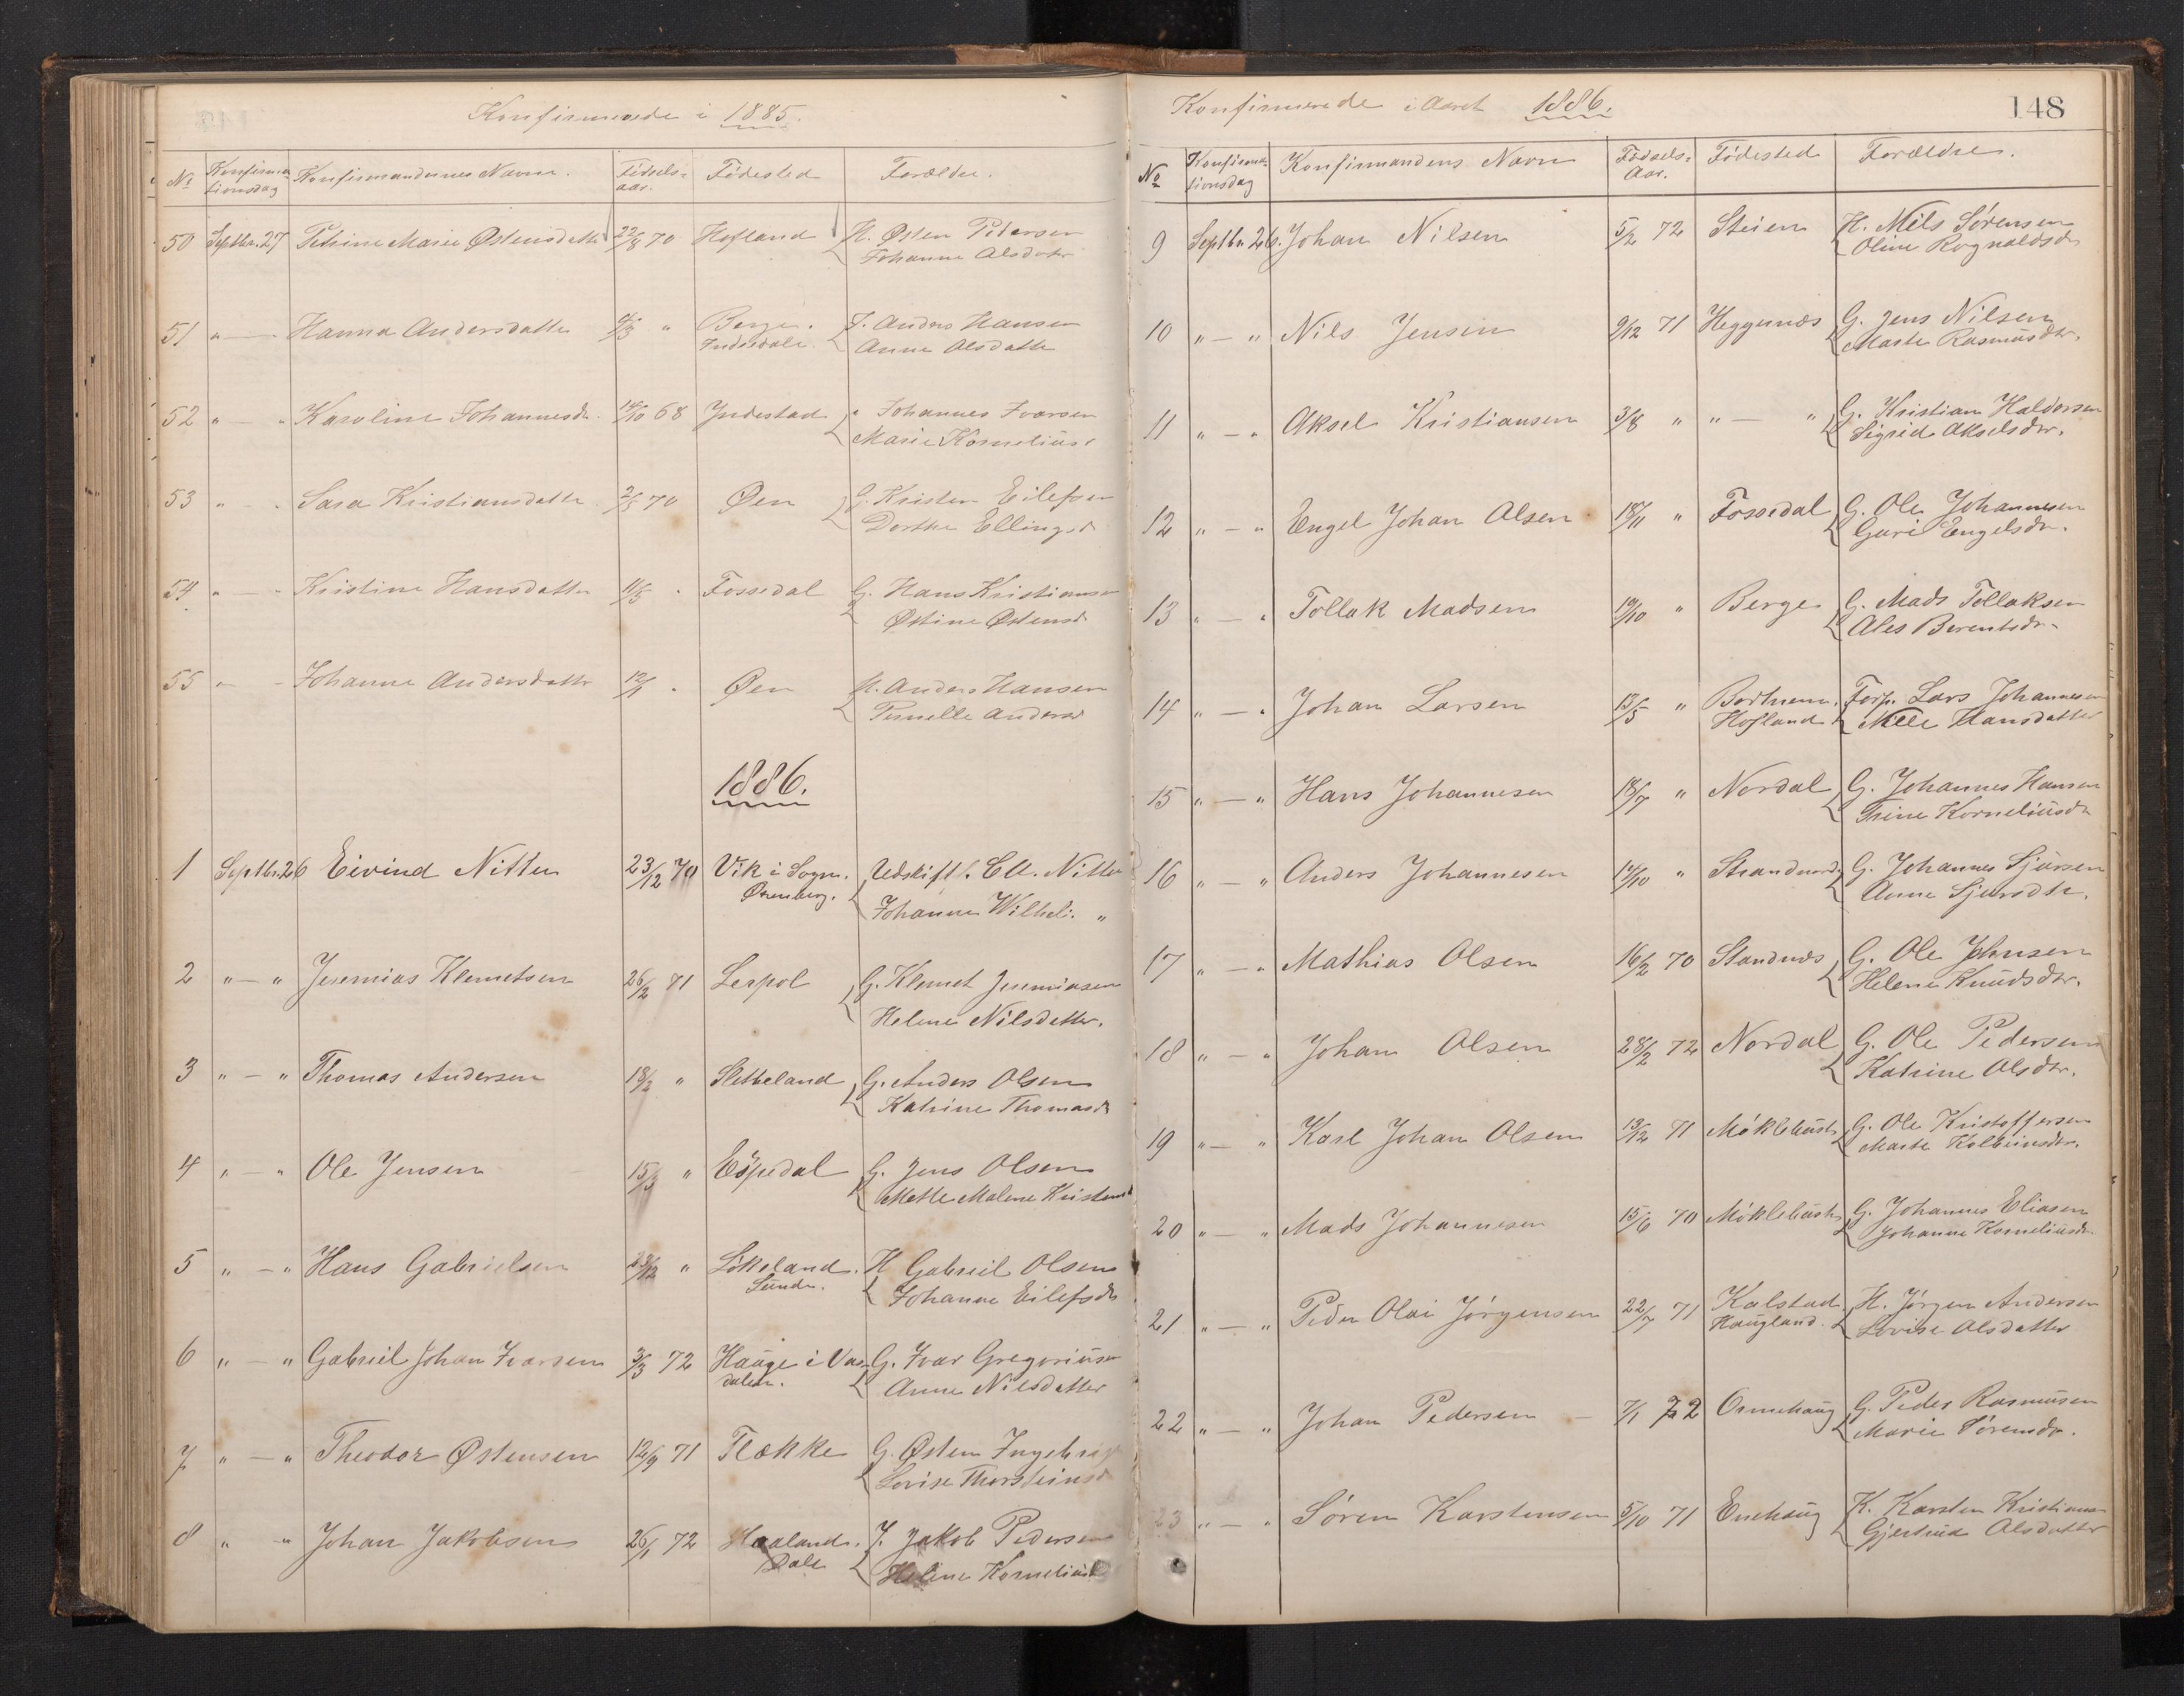 Konfirmerede i 1885.
No Konfirmationsdag Konfirmandernes Navne. Fødselsaar. Fødested Forældre.
50 Septbr. 27 Petrine Marie Østensdatter 22/8 70 Hofland H. Østen Pedersen
Johanne Olsdatter
51 " — Hanna Andersdatter " Berge. F. Anders Hansen
Indredale. Anne Olsdatter
52 " — " Karoline Johannesdr. 14/10 68 Indrestad " Johannes Ivarsen
Marie Korneliusd
53 " " Sara Kristiansdatter 70 Øen G. Kristen Eilefsen
Dorthe Ellingsd
54 " — " Kristine Hansdatter 11/5 " Fossedal G. Hans Kristiansen
Østine Østensd
55 " — Johanne Andersdatter 12/1 " Øen H. Anders Hansen
Pernelle Andersd
1886.
1 Septbr. 26 Eivind Nitter 23/12 70 Vik i Sogn. Udskift.f. Nitter
Johanne Wilheli. "
2 " — " Jeremias Klemetsen 26/2 71 Lespol G. Klemet Jeremiasen
Helene Nilsdatter.
3 " — " Thomas Andersen 18/2 " Sletteland G. Anders Olsen
Katrine Thomasd
4 " — " Ole Jensen 15/3 " Espedal G. Jens Olsen
Mette Malene Kristensd
5 " — " Hans Gabrielsen 23/12 " Løkeland. H Gabriel Olsen
Sunde. Johanne Eilefsdr
6 " — " Gabriel Johan Ivarsen 3/3 72 Hauge i Vas- G. Ivar Gregoriusen
dalen. Anne Nilsdatter
7 " — " Theodor Østensen 12/9 71 Flække G. Østen Ingebrigt
Lovise Thorsteinsd
8 " " Johan Jakobsen 26/1 72 Haaland. J. Jakob Pedersen
Dale Helene Korneliusd
Konfirmerede i Aaret 1886. 148
No Konfirmationsdag Konfirmandens Navn Fødsels-Aar. Fødested Forældre.
9 Septbr. 26. Johan Nilsen 5/2 72 Steien H. Nils Sørensen
Oline Rognaldsdr
10 " — " Nils Jensen 9/12 71 Heggenæs G. Jens Nilsen
Marte Rasmusdtr.
11 " — " Aksel Kristiansen 3/8 " " — " G. Kristian Haldorsen
Sigrid Akselsdr.
12 " — " Engel Johan Olsen 18/11 " Fossedal G. Ole Johannesen
Guri Engelsdr.
13 " — " Tollak Madsen 19/10 " Berge G. Mads Tollaksen
Ales Berentsdr.
14 " — " Johan Larsen 13/5 " Bortnem. Forp. Lars Johannesen
Hofland Nille Hansdatter
15 " — " Hans Johannesen 18/7 " Nordal G. Johannes Hansen
Trine Korneliusdr
16 " — " Anders Johannesen 14/10 " Strandnord. G. Johannes Sjursen
Anne Sjursdtr.
17 " — " Mathias Olsen 16/2 70 Standnæs G. Ole Johnsen
Helene Knudsdtr.
18 " — " Johan Olsen 28/2 72 Nordal G. Ole Pedersen
Katrine Olsdtr.
19 " — " Karl Johan Olsen 13/12 71 Møklebust G. Ole Kristoffersen
Marte Kolbeinsdtr.
20 " — " Mads Johannesen 15/6 70 Møklebust G. Johannes Eliasen
Johanne Korneliusdr
21 " — " Peder Olai Jørgensen 22/7 71 Kalstad H. Jørgen Andersen
Haugland. Lovise Olsdatter
22 " — " Johan Pedersen 7/1 72 Ormehaug G. Peder Rasmusen
Marie Sørensdr.
23 " — " Søren Karstensen 5/10 71 Enehaug K. Karsten Kristiansen
Gjertrud Olsdatter